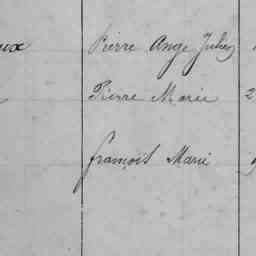 Pierre Ange Julien
Pierre Marie 2
françois Marie